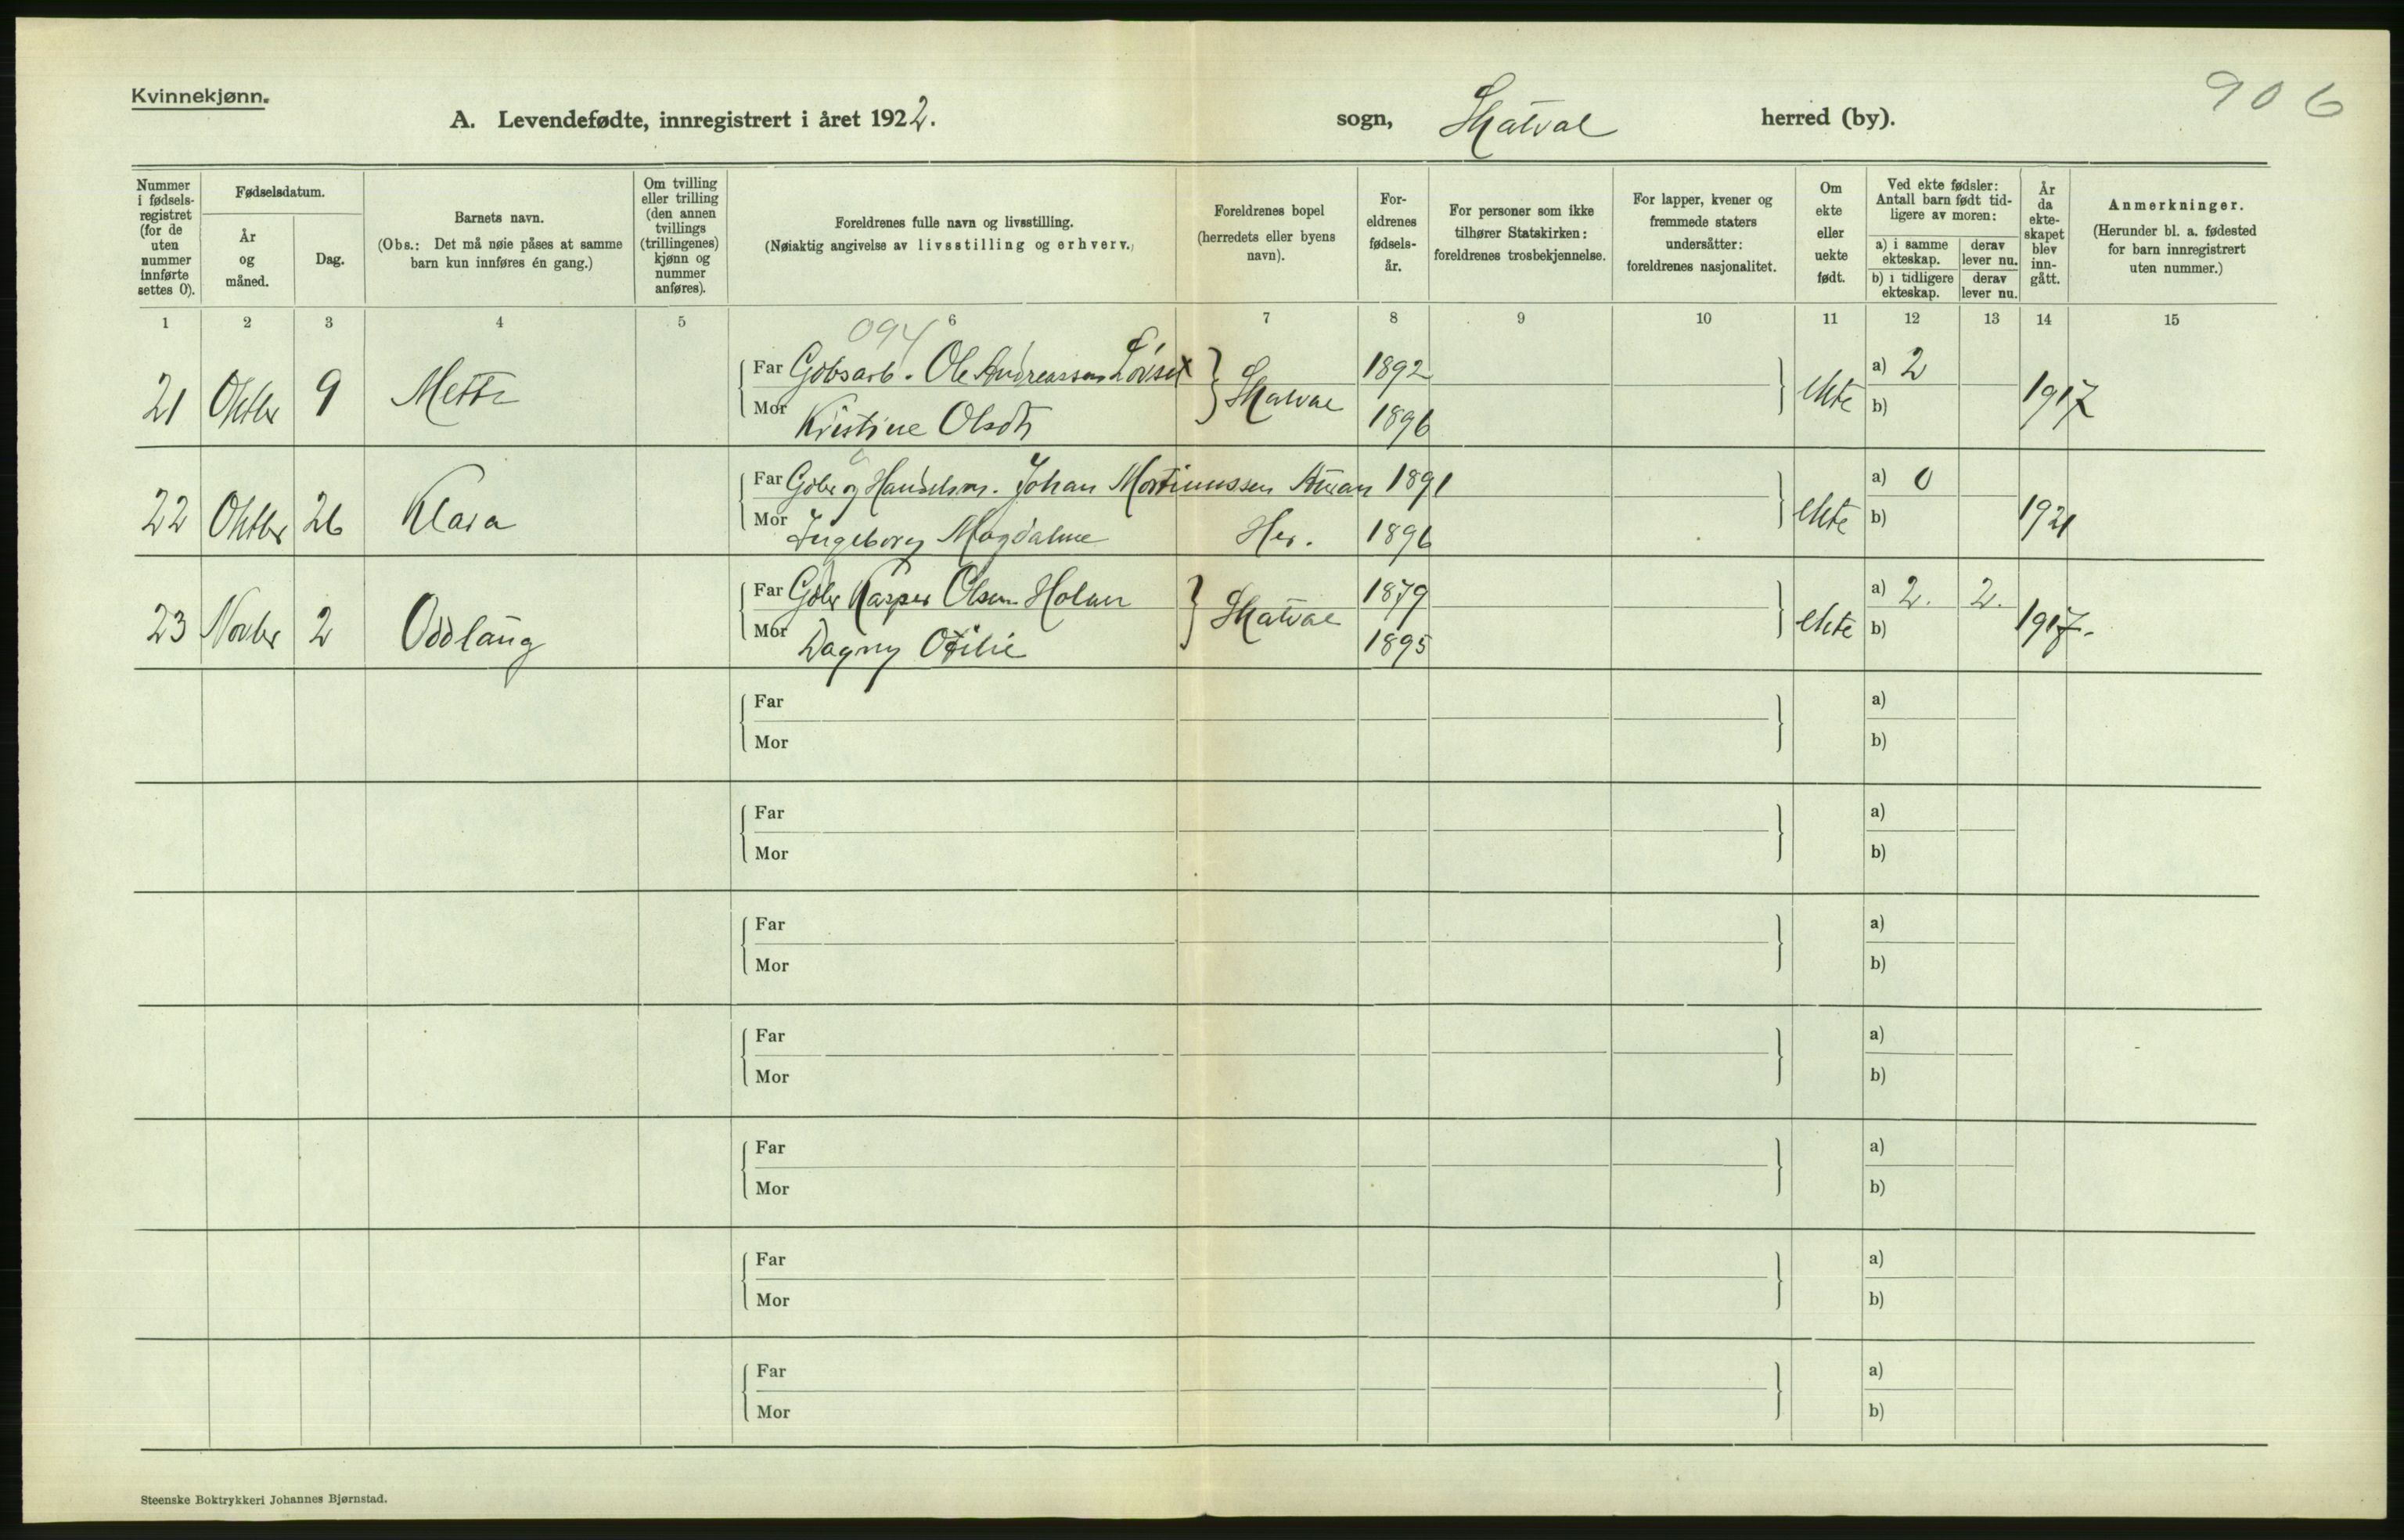 Kvinnekjønn.
906
A. Levendefødte, innregistrert i året 1922.
sogn, Skatval herred (by).
Nummer i fødselsregistret (for de uten nummer innførte settes 0).
Fødselsdatum.
År og måned.
Dag.
Barnets navn.
(Obs.: Det må nøie påses at samme barn kun innføres én gang.)
Om tvilling eller trilling (den annen tvillings (trillingenes) kjønn og nummer anføres).
Foreldrenes fulle navn og livsstilling.
(Nøiaktig angivelse av livsstilling og erhverv.)
Foreldrenes bopel (herredets eller byens navn).
Foreldrenes fødselsår.
For personer som ikke tilhører Statskirken: foreldrenes trosbekjennelse.
For lapper, kvener og fremmede staters undersåtter: foreldrenes nasjonalitet.
Om ekte eller uekte født.
Ved ekte fødsler: Antall barn født tidligere av moren:
a) i samme ekteskap.
derav lever nu.
b) i tidligere ekteskap.
derav lever nu.
År da ekteskapet blev inngått.
Anmerkninger.
(Herunder bl. a. fødested for barn innregistrert uten nummer.)
1 2 3 4 5 6 7 8 9 10 11 12 13 14 15
094
21 Oktbr 9 Mette
Far Gbsarb. Ole Andreassen Lörset
Mor Kristine Olsdtr
Skatval 1892 1896 ekte a) 2 b) 1917
22 Oktbr 26 Klara
Far Gbr og Handelsm. Johan Mortinussen Auran 1891
Mor Ingeborg Magdalene Her. 1896
ekte a) 0 b) 1921
23 Novbr 2 Oddlaug
Far Gbr Kasper Olsen Holan
Mor Dagny Otilie
Skatval 1879 1895 ekte a) 2. 2. b) 1917.
Far
Mor
a)
b)
Far
Mor
a)
b)
Far
Mor
a)
b)
Far
Mor
a)
b)
Far
Mor
a)
b)
Far
Mor
a)
b)
Far
Mor
a)
b)
Steenske Boktrykkeri Johannes Bjørnstad.